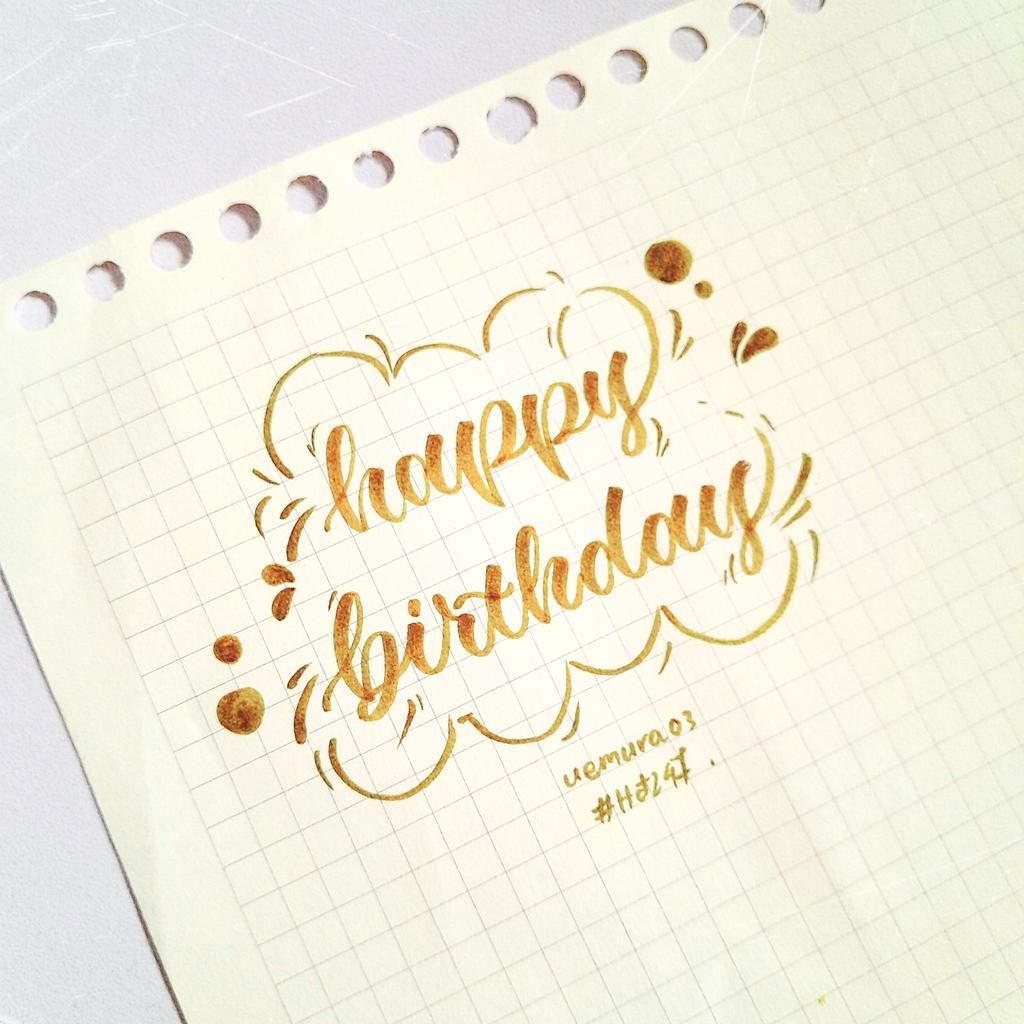 happy
birthday
uemura03